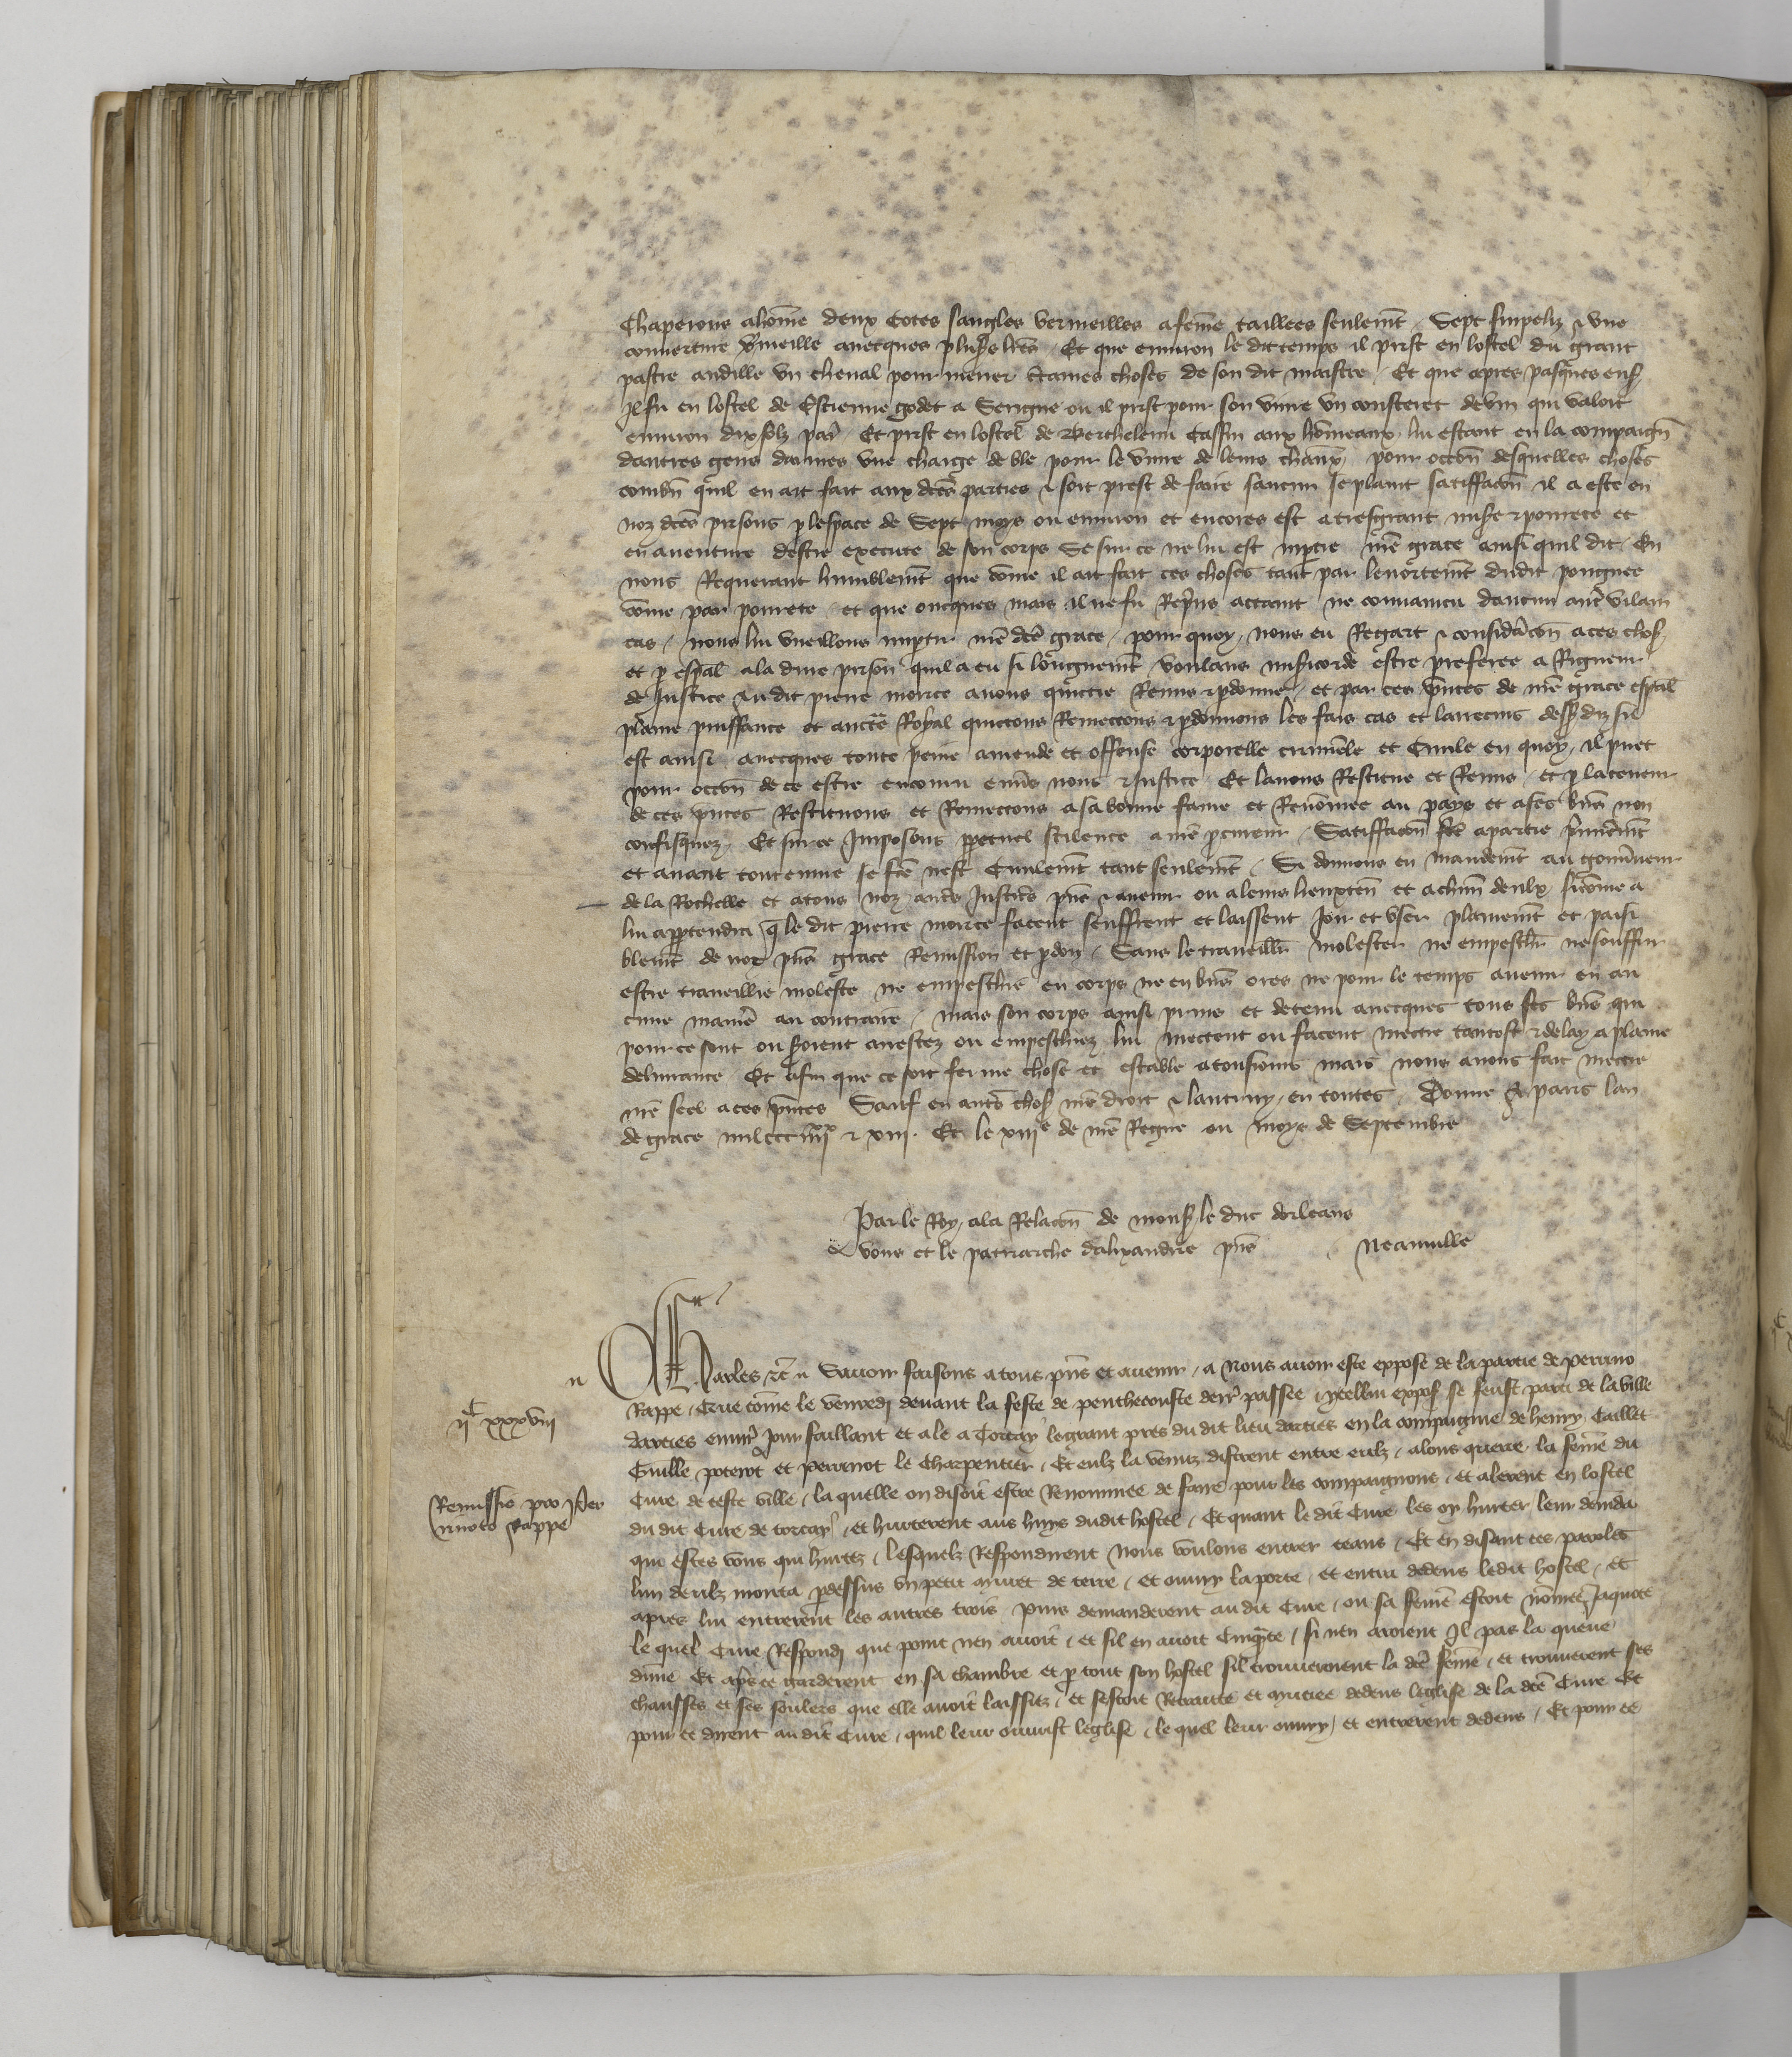 Chaperons a hom̄e deux cotes sangles vermeilles a fem̄e taillees seulemt̄ / Sept surpeliz & une
couverture v̄meille avecques plus̄s lit̄s / Et que environ le dit temps il prist en lostel du grant
pastre andille un cheval pour mener c̄taines choses de son dit maistre / Et que apres pasques ens̄
Il fu en lostel de Estienne godet a Serigne ou il prist pour son vivre un consteret de vin qui valoit
environ dix solz par̄ Et prist en lostel de Berthelemi Cassin aux hom̄eaux lui estant en la compaign̄
dautres gens darmes une charge de ble pour le vivre de leurs chaux̄ pour occōn desquelles choses
combn̄ quil en ait fait aux dc̄es parties & soit prest de faire saucun se plaint satiffacōn il a este en
noz dc̄es prisons p lespace de Sept moys ou environ et encores est a tresgrant mis̄e & povrete et
en aventure destre execute de son corps Se sur ce ne lui est imp̄tie nr̄e grace ainsi quil dit / En
nous Requerant humblemt̄ que com̄e il ait fait ces choses tant par lenortemt̄ dudit pongnee
com̄e par povrete / et que oncques mais il ne fu Rep̄ns actaint ne convaincu daucun aut̄ vilain
cas / nous lui vueillons imp̄tir nr̄e dc̄e grace / pour quoy / nous eu Regart & considāōn a ces chos̄
et p esp̄al a la dure prison quil a eu si longuemt̄ voulans mis̄icorde estre preferee a Rigueur
de Justice au dit pierre morice avons quictie Remis & p̄donne / et par ces p̄ntes de nr̄e grace esp̄al
plaine puissance et auctē Royal quictons Remectons & p̄donnons les fais cas et larrecins dess̄ diz sil
est ainsi avecques toute peine amende et offense corporelle crimin̄le et Civile en quoy / il puet
pour occōn de ce estre encouru env̄s nous & Justice / Et lavons Restitue et Remis / et p la teneur
de ces p̄ntes Restituons et Remectons a sa bonne fame et Renom̄ee au pays et a ses bn̄s non
confisquez / Et sur ce Imposons p̄petuel scilence a nr̄e p̄cureur / Satiffacōn fc̄e a partie p̄mieremt̄
et avant toute euvre se fc̄e nest Civilemt̄ tant seulemt̄ / Si donnons en mandemt̄ au gouv̄neur
de la Rochelle et a tous noz aut̄s Justic̄s p̄ns & avenir ou a leurs lieuxten̄ et a chūn deulx / si com̄e a
lui app̄tendra q̄ le dit pierre morice facent seuffrent et laissent Joir et user plainemt̄ et paisi
blemt̄ de noz p̄ns grace Remission et p̄don / Sans le traveillr̄ molester ne empeschr̄ ne souffrir
estre traveillie moleste ne empeschie en corps ne en bn̄s ores ne pour le temps avenir en au
cune manie᷑ au contraire / mais son corps ainsi prins et detenu avecques tous ses bn̄s qui
pour ce sont ou s̄roient arrestez ou empeschiez lui mectent ou facent mectre tantost & delay a plaine
delivrance / Et afin que ce soit ferme chose et estable a tousiours mais nous avons fait mectre
nr̄e seel a ces p̄ntes Sauf en aut̄s chos̄ nr̄e droit & lautruy / en toutes / Donne a paris lan
de grace mil ccc iiijxx & xiii. Et le xiije de nr̄e Regne ou moys de Septembre
Par le Roy / a la Relacōn de mons̄ le duc dorleans
& vous et le patriarche dalixandrie p̄ns / Neauville
Charles etc̄ // Savoir faisons a tous p̄ns et avenir / a Nous avoir este expose de la partie de perrino
Rappe / Que com̄e le vendredj devant la feste de penthecouste derr̄ passee / ycellui expos̄ se feust parti de la ville
darcies envir̄ Jour faillant et ale a Torcay legrant pres du dit lieu darcies en la compaignie de henry Caillet
Guille poterot et perrinot le Charpentier / Et eulz la venuz distrent entre eulz / alons querre la fem̄e du
Cure de ceste ville / la quelle on disoit estre Renommee de faire pour les compaignons / et alerent en lostel
du dit Cure de torcay / et hurterent aus huys dudit hostel / Et quant le dit Cure les oy hurter leur demāda
qui estes vous qui hurtez / lesquelz Respondirent Nous voulons entrer ceans / Et en disant ces paroles
lun deulz monta p̄dessus un petit muret de terre / et ouvry la porte / et entra dedens ledit hostel / Et
apres lui entrerent les autres trois / puis demanderent au dit Cure / ou sa fem̄e estoit nom̄ee Jaquote
le quel Cure Respondj que point nen avoit / et sil en avoit Cinqāte / si nen avoient Il pas la queue
dune Et apr̄s ce garderent en sa chambre et p tout son hostel sil trouveroient la dc̄e fem̄e / et trouverent ses
chausses et ses soulers que elle avoit laissiez / et sestoit Retraitte et mucee dedens leglise de la dc̄e Cure Et
pour ce dirent au dit Cure / quil leur ouvrist leglise / le quel leur ouvry / et entrerent dedens / Et pour ce
ijC xxxviij
Remissio pro Per
rinoto Rappe